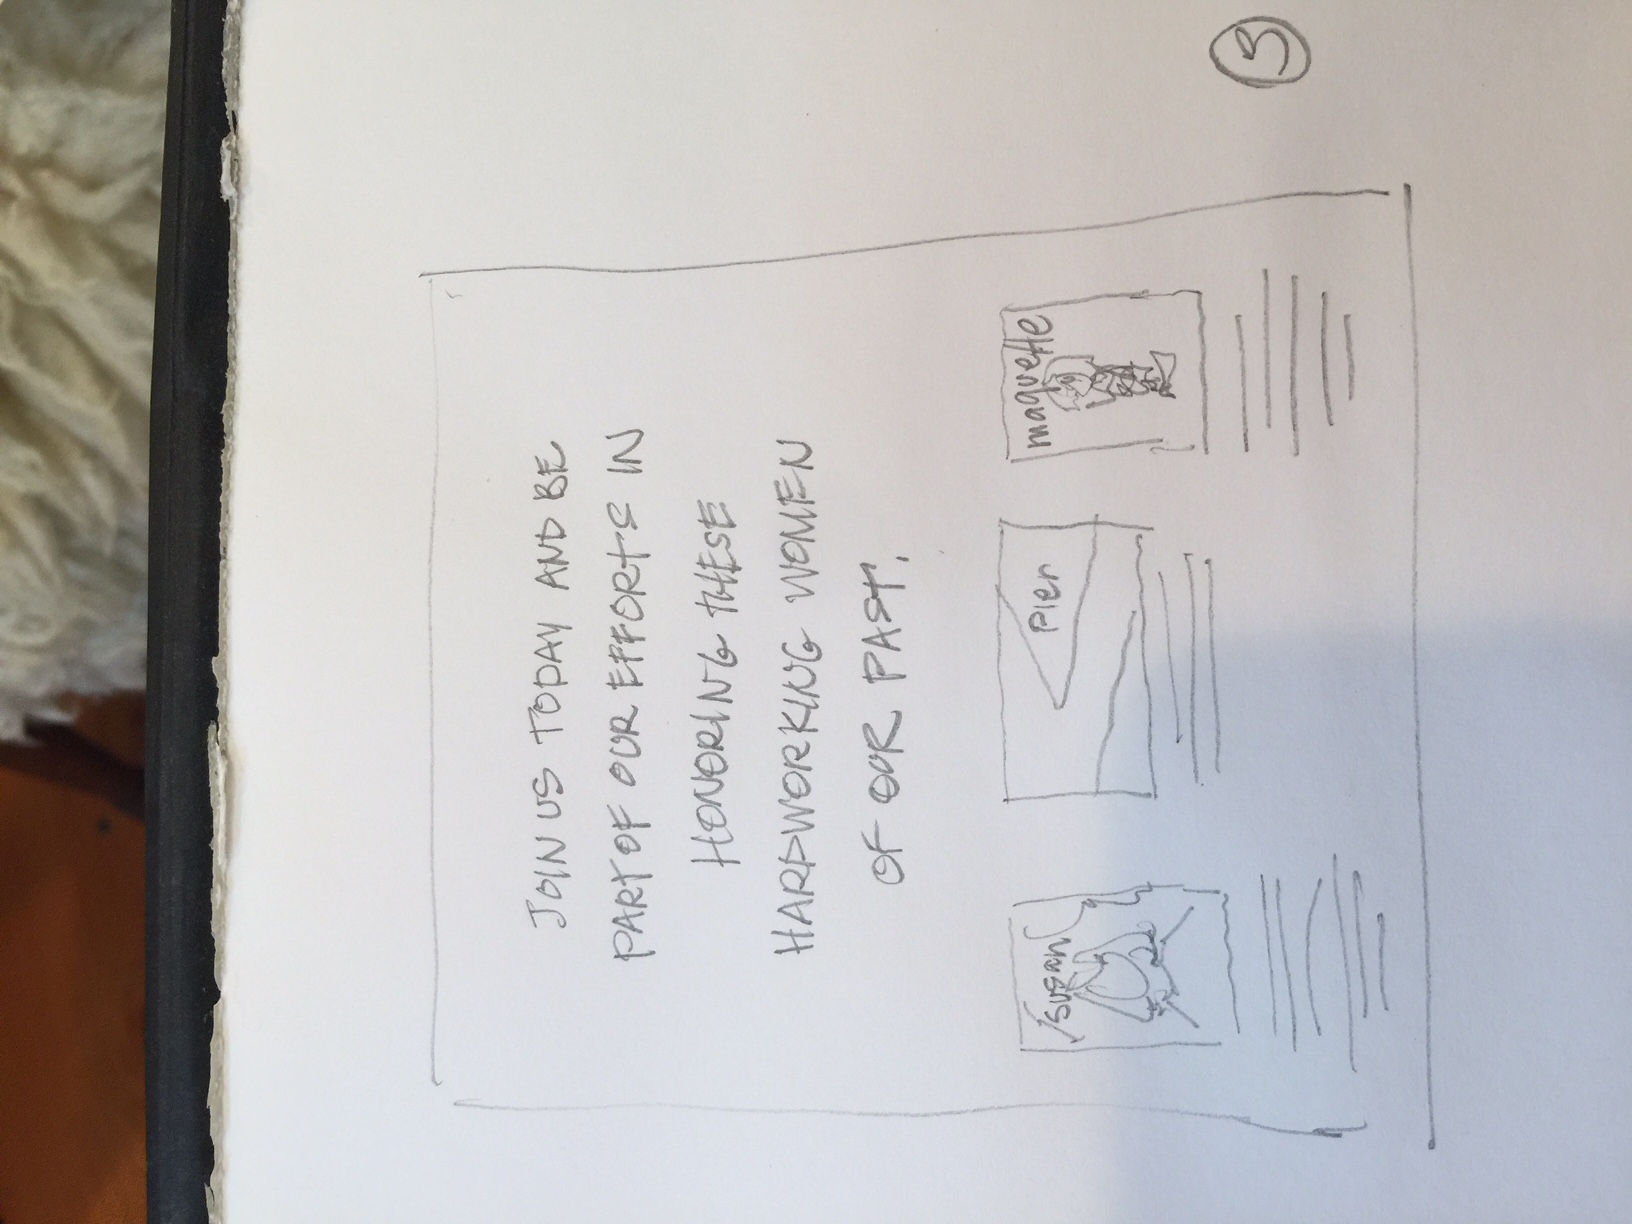 JOIN US TODAY AND BE
PART OF OUR EFFORTS IN
HONORING THESE
HARDWORKING WOMEN
OF OUR PAST.
susan
Pier
maquette
3